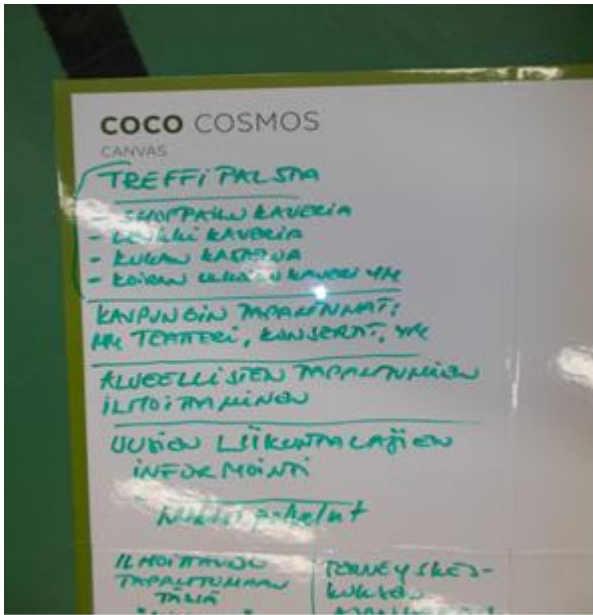 COCO COSMOS
CANVAS
TREFFI PALSTA
- SHOPPAILU KAVERIA
- LENKKI KAVERIA
- KUKAN KASTELUA
- KOIRAN ULKOILU KAVERI YM
KAUPUNGIN TAPAHTUMAT:
TEATTERI, KONSERTIT, YM
ALUEELLISTEN TAPAHTUMIEN
ILMOITTAMINEN
UUSIEN LIIKUNTALAJIEN
INFORMOINTI
puhelut
ILMOITTAUDU
TAPAHTUMAAN
TÄMÄ
TERVEYSKES-
KUKSEN